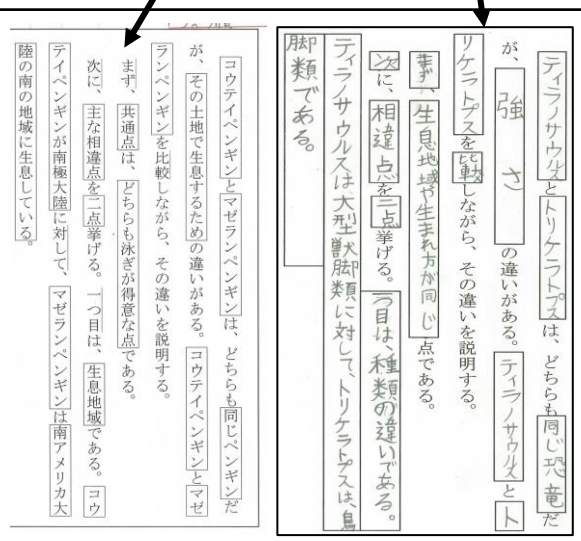 ティラノサウルスとトリケラトプスは、どちらも同じ恐竜だ
が、強さの違いがある。ティラノサウルスとト
リケラトプスを比較しながら、その違いを説明する。
まず、生息地域や生まれ方が同じ点である。
次に、相違点を二点挙げる。一つ目は、種類の違いである。
ティラノサウルスは大型獣脚類に対して、トリケラトプスは、鳥
脚類である。
コウテイペンギンとマゼランペンギンは、どちらも同じペンギンだ
が、その土地で生息するための違いがある。コウテイペンギンとマゼ
ランペンギンを比較しながら、その違いを説明する。
まず、共通点は、どちらも泳ぎが得意な点である。
次に、主な相違点を二点挙げる。一つ目は、生息地域である。コウ
テイペンギンが南極大陸に対して、マゼランペンギンは南アメリカ大
陸の南の地域に生息している。